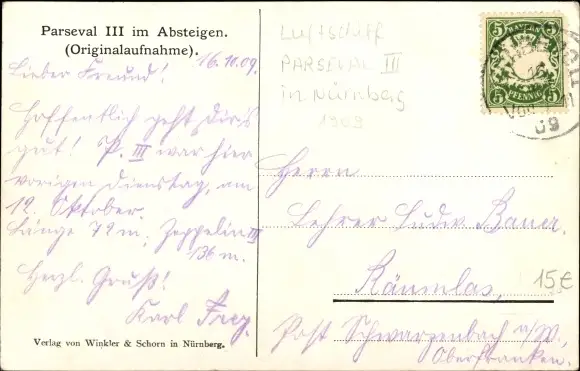 Parseval III im Absteigen.
(Originalaufnahme).
16.10.09.
Lieber Freund!
Hoffentlich geht dir's
gut! P. III war hier
vorigen Dienstag, am
12. Oktober.
Länge 72 m; Zeppelin III
136 m.
Herzl. Gruß!
Karl Frey.
Verlag von Winkler & Schorn in Nürnberg.
Luftschiff
PARSEVAL III
in Nürnberg
1909
BAYERN
5 5
5 5
PFENNIG
15
VOR
09
Herrn
Lehrer Ludw. Bauer.
Räumlas,
15€
Post Schwarzenbach a/W,
Oberfranken.